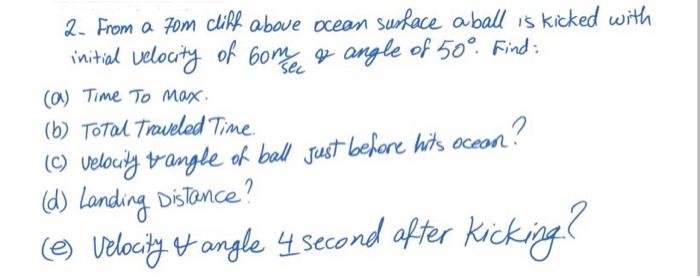 2- From a 70m cliff above ocean surface a ball is kicked with
initial velocity of 60 m/sec & angle of 50°. Find:
(a) Time To Max.
(b) Total Traveled Time.
(c) velocity & angle of ball just before hits ocean?
(d) Landing Distance?
(e) Velocity & angle 4 second after kicking?